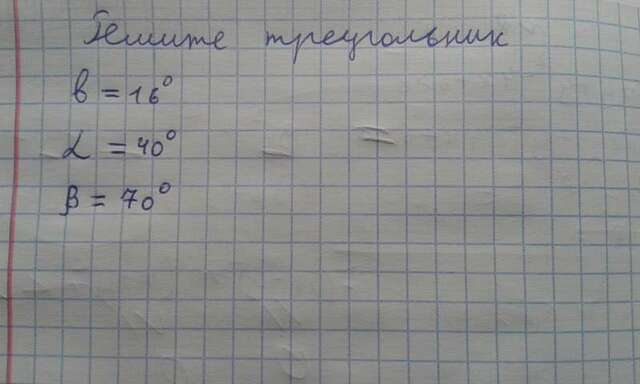 Решите треугольник
в = 16°
α = 40°
β = 70°